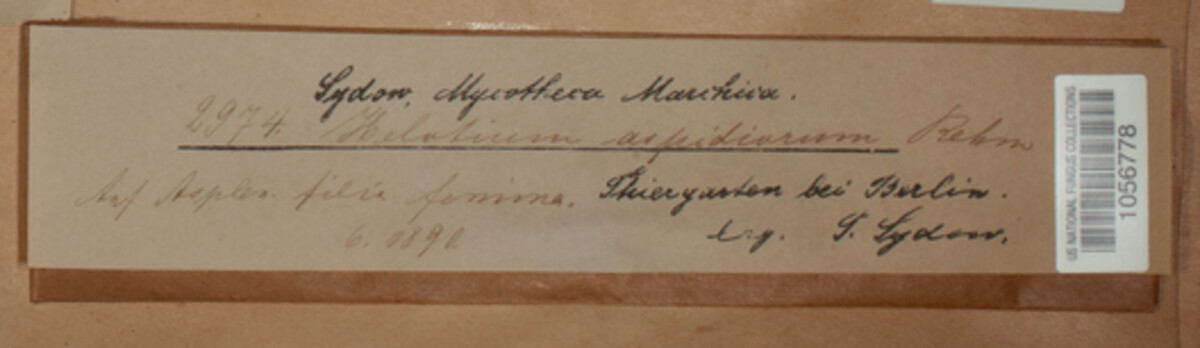 Sydow, Mycotheca Marchica.
2974. Helotium aspidiorum Rehm
Auf Asplen. filix femina. Thiergarten bei Berlin.
6. 1890 leg. P. Sydow.
US NATIONAL FUNGUS COLLECTIONS
1056778